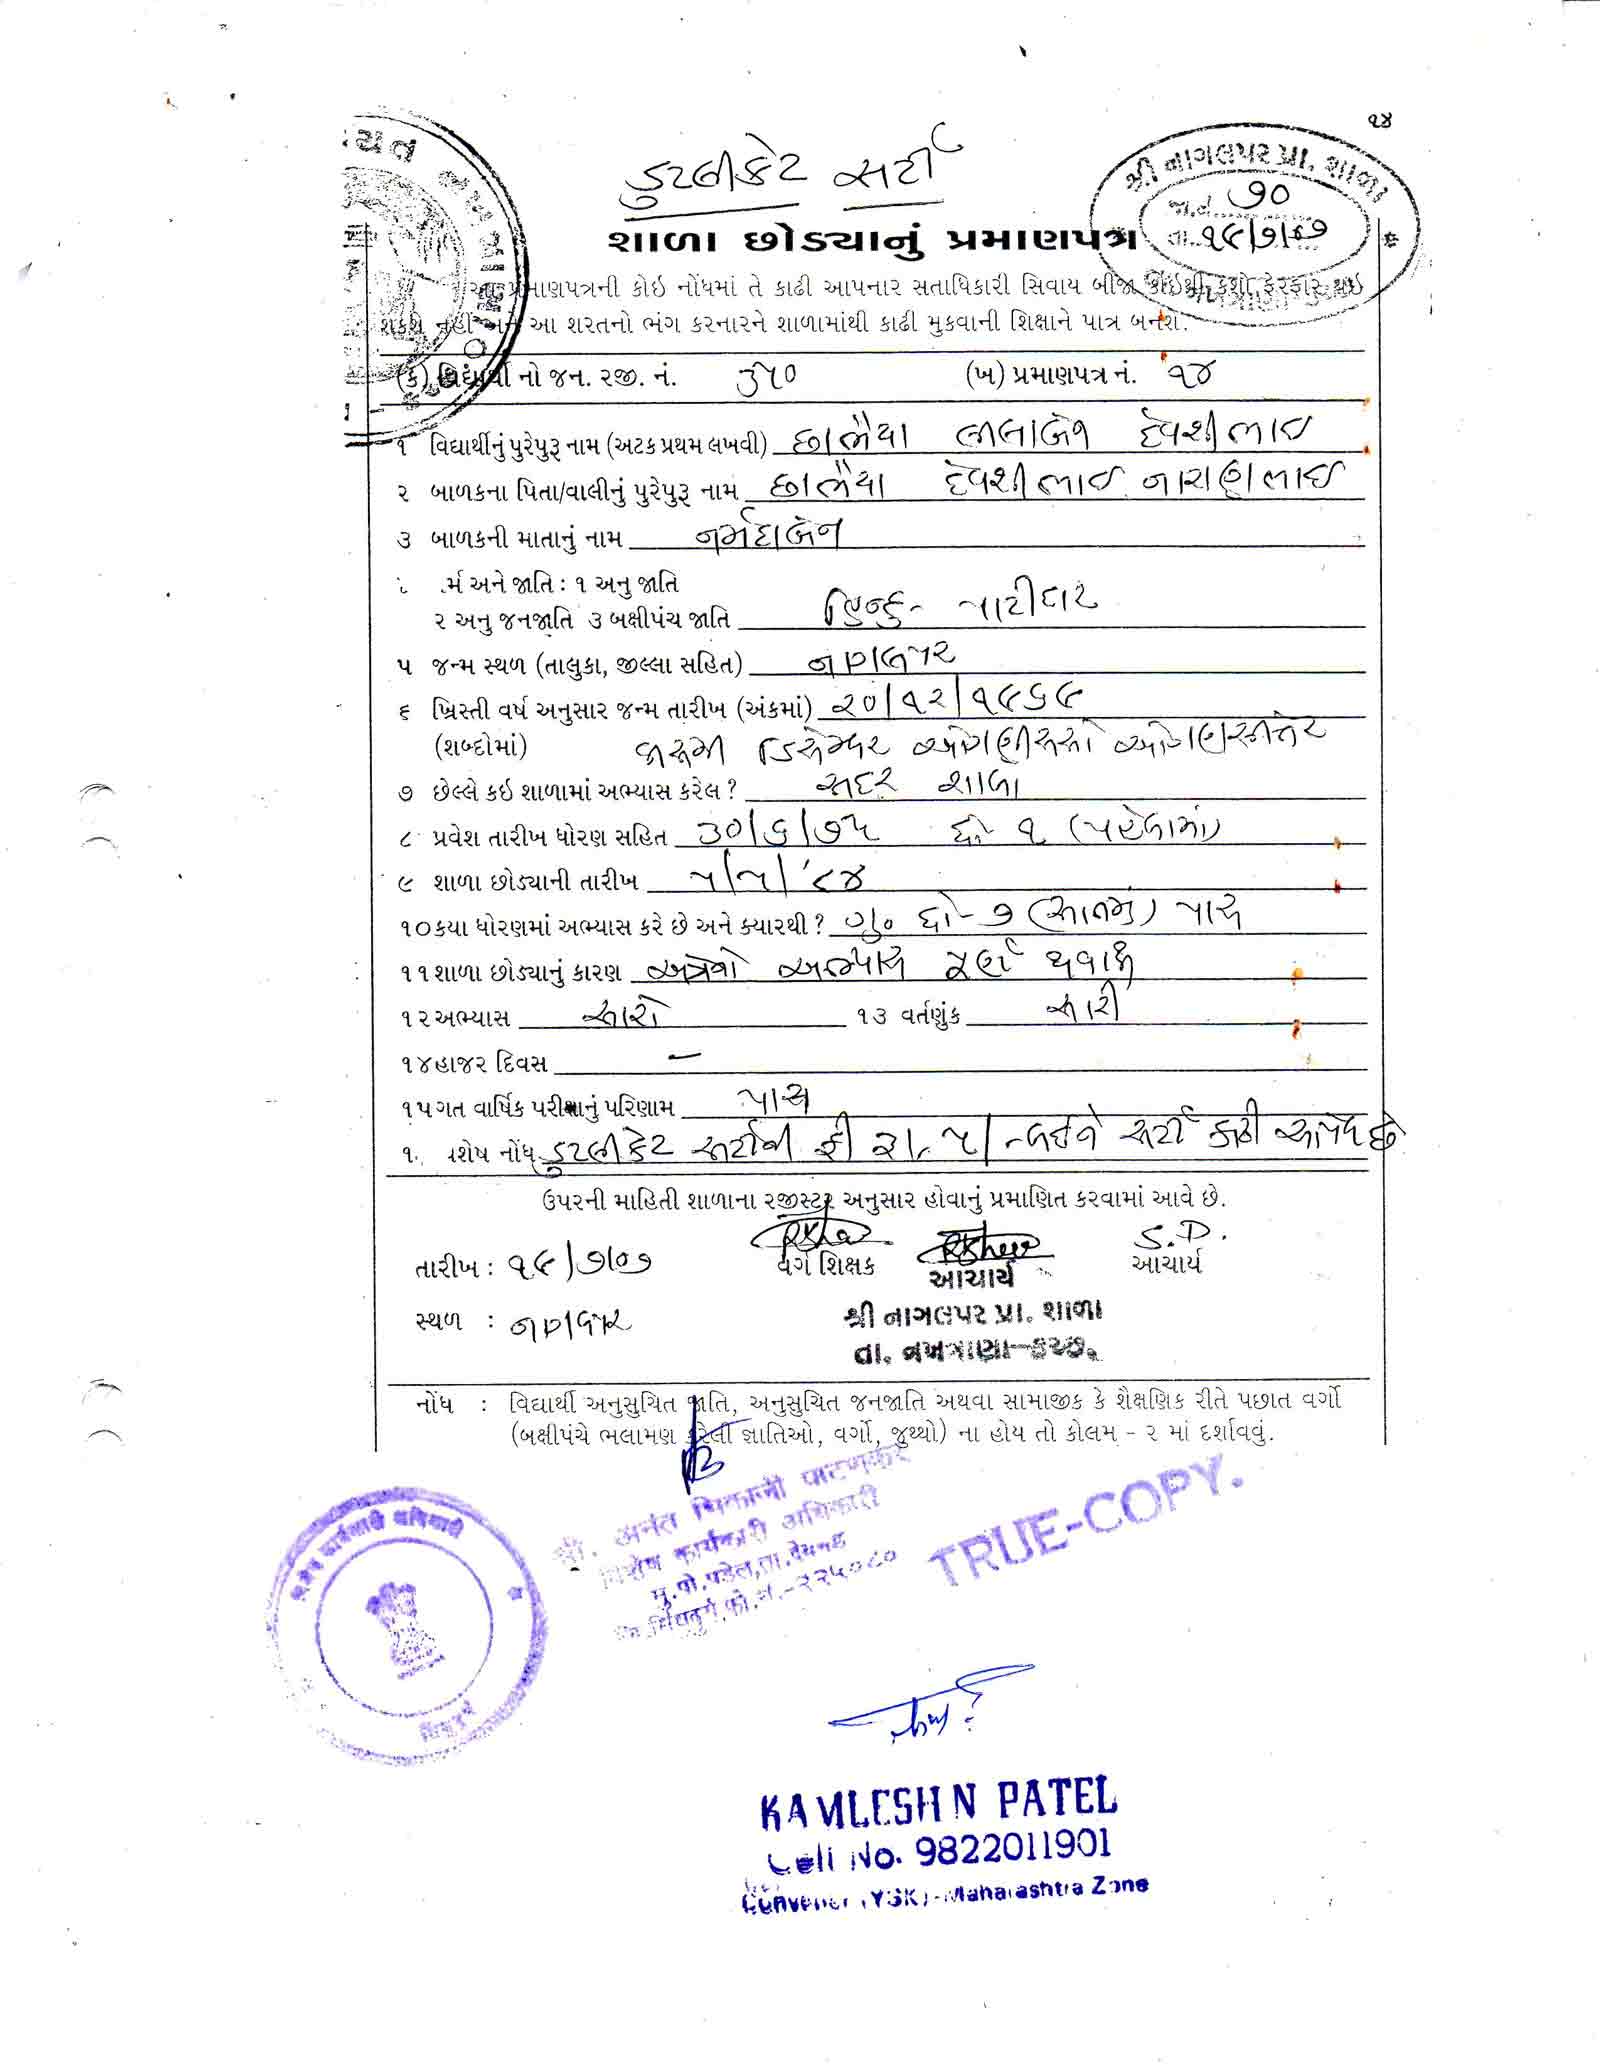 ૧૪
ડુપ્લીકેટ સર્ટી
શ્રી નાગલપર પ્રા. શાળા
જા.નં. ૭૦
તા. ૧૯/૭/૦૭
શાળા છોડ્યાનું પ્રમાણપત્ર
આ પ્રમાણપત્રની કોઇ નોંધમાં તે કાઢી આપનાર સતાધિકારી સિવાય બીજા કોઇથી કશો ફેરફાર થઇ
શકશે નહીં અને આ શરતનો ભંગ કરનારને શાળામાંથી કાઢી મુકવાની શિક્ષાને પાત્ર બનશે.
(ક) વિદ્યાર્થી નો જન. રજી. નં. ૩૫૦ (ખ) પ્રમાણપત્ર નં. ૧૪
૧ વિદ્યાર્થીનું પુરેપુરૂ નામ (અટક પ્રથમ લખવી) છાભૈયા લીલાબેન દેવશીભાઇ
૨ બાળકના પિતા/વાલીનું પુરેપુરૂ નામ છાભૈયા દેવશીભાઇ નારાણભાઇ
૩ બાળકની માતાનું નામ નર્મદાબેન
ર્મ અને જાતિ : ૧ અનુ જાતિ
૨ અનુ જનજાતિ ૩ બક્ષીપંચ જાતિ હિન્દુ - પાટીદાર
૫ જન્મ સ્થળ (તાલુકા, જીલ્લા સહિત) નાગલપર
૬ ખ્રિસ્તી વર્ષ અનુસાર જન્મ તારીખ (અંકમાં) ૨૦/૧૨/૧૯૬૯
(શબ્દોમાં) વીસમી ડિસેમ્બર ઓગણીસસો ઓગણસીત્તેર
૭ છેલ્લે કઇ શાળામાં અભ્યાસ કરેલ ? સદર શાળા
૮ પ્રવેશ તારીખ ધોરણ સહિત ૩૦/૬/૭૫ ધો ૧ (પહેલામાં)
૯ શાળા છોડ્યાની તારીખ ૫/૫/'૮૪
૧૦ કયા ધોરણમાં અભ્યાસ કરે છે અને ક્યારથી ? ગુ. ધો - ૭ (સાતમું) પાસ
૧૧ શાળા છોડ્યાનું કારણ અત્રેનો અભ્યાસ પૂર્ણ થવાથી
૧૨ અભ્યાસ સારો ૧૩ વર્તણુંક સારી
૧૪ હાજર દિવસ –
૧૫ ગત વાર્ષિક પરીક્ષાનું પરિણામ પાસ
૧. શેષ નોંધ ડુપ્લીકેટ સર્ટીની ફી રૂા. ૫/- લઇને સર્ટી કાઢી આપેલ છે
ઉપરની માહિતી શાળાના રજીસ્ટર અનુસાર હોવાનું પ્રમાણિત કરવામાં આવે છે.
S.D.
તારીખ : ૧૯/૭/૦૭ વર્ગ શિક્ષક આચાર્ય આચાર્ય
સ્થળ : નાગલપર
શ્રી નાગલપર પ્રા. શાળા
તા. નખત્રાણા-કચ્છ.
નોંધ : વિદ્યાર્થી અનુસુચિત જાતિ, અનુસુચિત જનજાતિ અથવા સામાજીક કે શૈક્ષણિક રીતે પછાત વર્ગો
(બક્ષીપંચે ભલામણ કરેલી જ્ઞાતિઓ, વર્ગો, જુથ્થો) ના હોય તો કોલમ - ૨ માં દર્શાવવું.
श्री. अनंत भिकाजी पाटणकर
विशेष कार्यकारी अधिकारी
मु.पो.पडेल,ता.देवगड
TRUE-COPY.
KAMLESH N PATEL
Cell No. 9822011901
Convener (YSK) - Maharashtra Zone